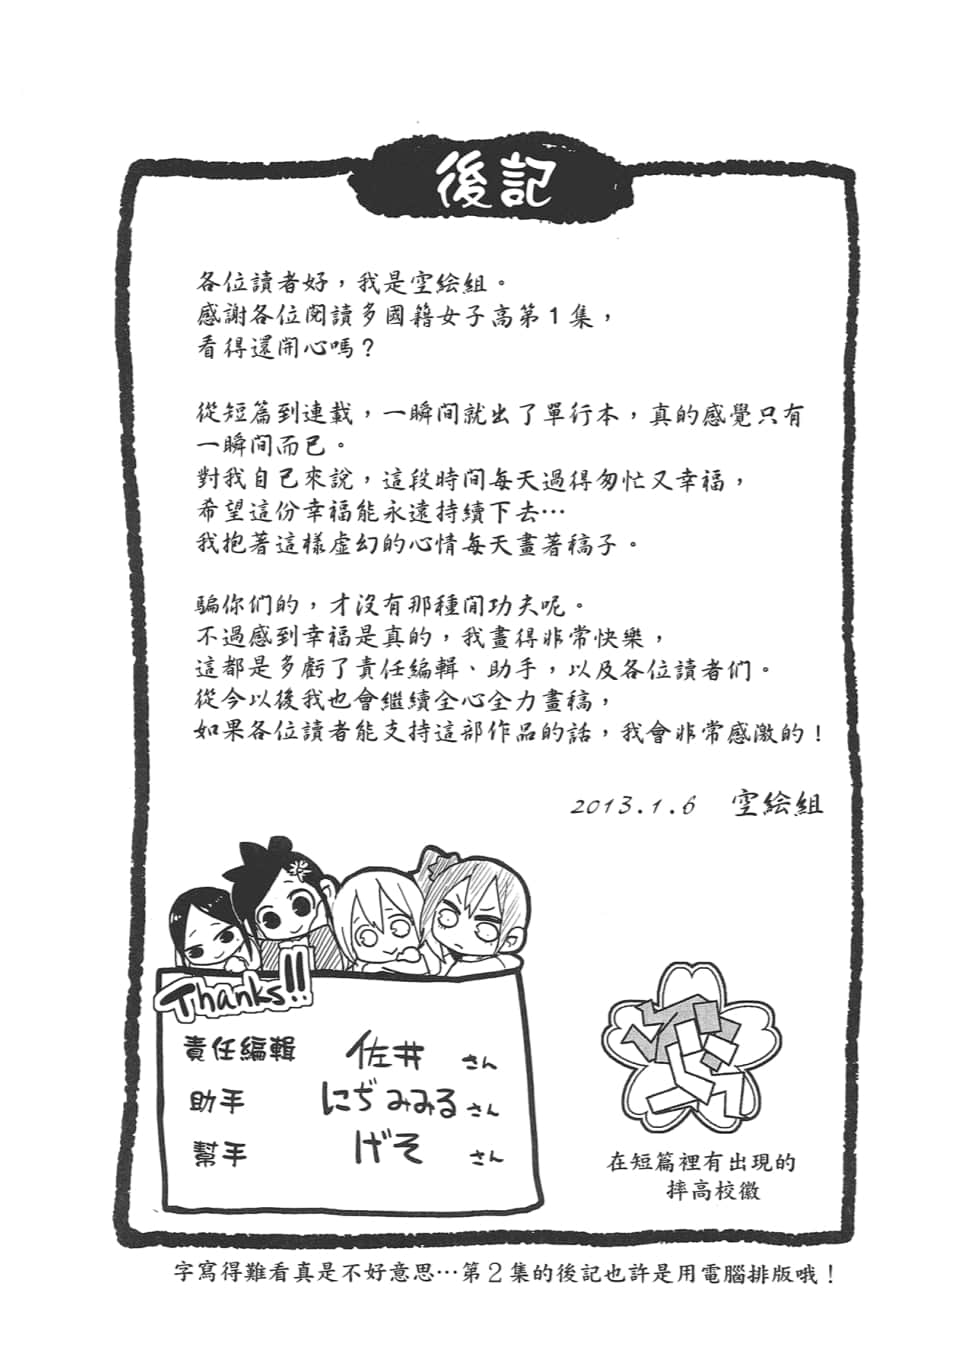 後記
各位讀者好，我是空絵組。
感謝各位閱讀多國籍女子高第1集，
看得還開心嗎？
從短篇到連載，一瞬间就出了單行本，真的感覺只有
一瞬间而已。
對我自己來說，這段時间每天過得匆忙又幸福，
希望這份幸福能永遠持續下去…
我抱著這樣虛幻的心情每天畫著稿子。
騙你们的，才沒有那種閒功夫呢。
不過感到幸福是真的，我畫得非常快樂，
這都是多虧了責任編輯、助手，以及各位讀者们。
從今以後我也會繼續全心全力畫稿，
如果各位讀者能支持這部作品的話，我會非常感激的！
2013.1.6 空絵組
Thanks!!
責任編輯 佐井 さん
助手 にぢみみる さん
幫手 げそ さん
在短篇裡有出現的
摔高校徽
字寫得難看真是不好意思…第2集的後記也許是用電腦排版哦！